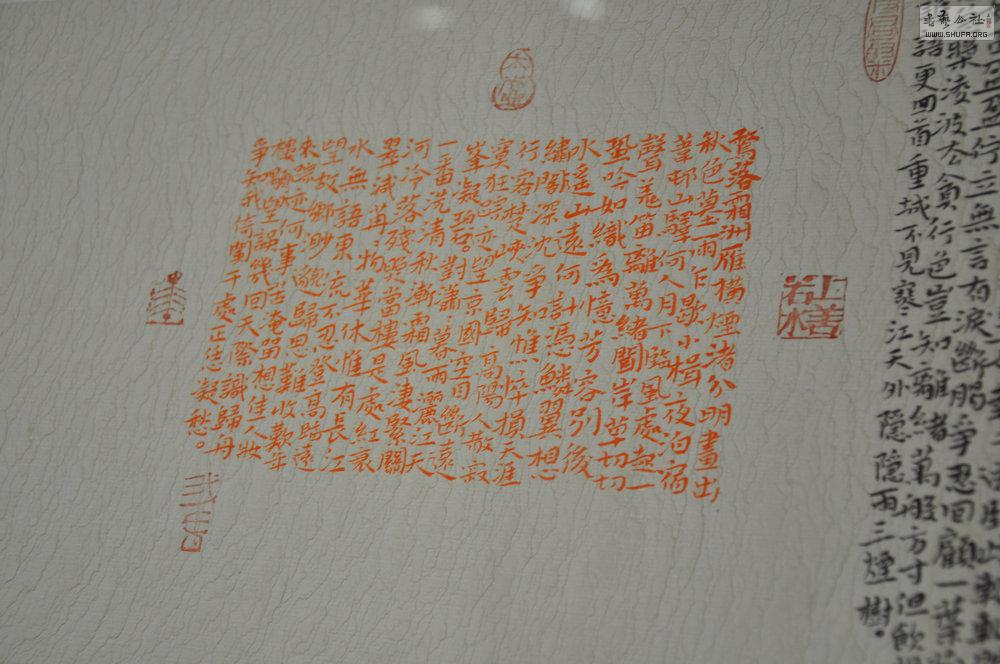 書藝公社
WWW.SHUFA.ORG
盈佇立無言有淚斷腸爭忍回顧一葉
槳凌波去貪行色豈知離緒萬般方寸但飲
語更回首重城不見寒江天外隱隱兩三煙樹。
上善若水
鶩落霜洲雁橫煙渚分明畫出
秋色暮雨乍歇小楫夜泊宿
葦邨山驛何人月下臨風處起一
聲羌笛離萬緒聞岸草切切
蛩吟如織為憶芳容別後
水遙山遠何計憑鱗翼想
繡閣深沈爭知憔悴損天涯
行客楚峽雲歸高陽人散寂
寞狂蹤迹望京國空目斷遠
峯凝碧。對瀟瀟暮雨灑江天
一番洗清秋漸霜風淒緊關
河冷落殘照當樓是處紅衰
翠減苒苒物華休惟有長江
水無語東流不忍登高臨遠
望故鄉渺邈歸思難收歎年
來蹤迹何事苦淹留想佳人妝
樓顒望誤幾回天際識歸舟
爭知我倚闌干處正恁凝愁。